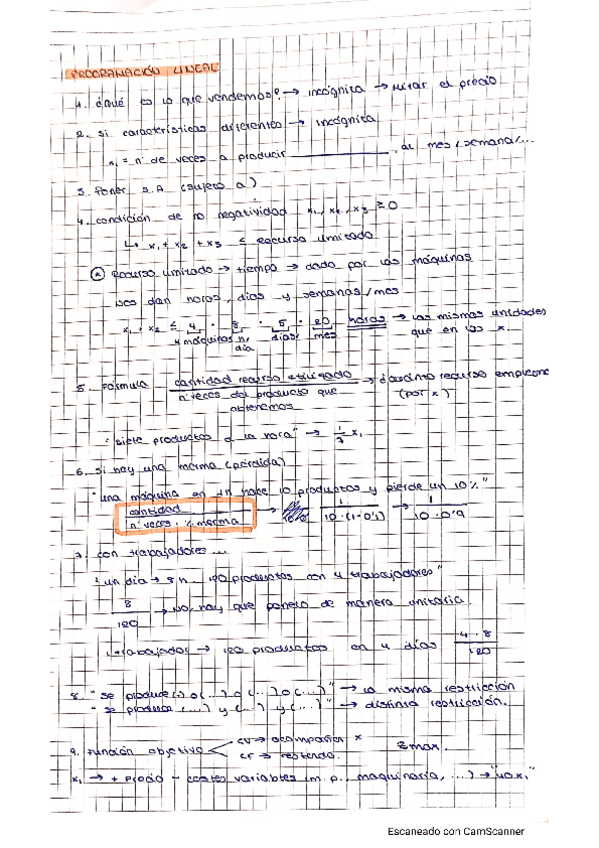 PROGRAMACIÓN LINEAL
1. ¿Qué es lo que vendemos? → incógnita → mirar el precio
2. Si características diferentes → incógnita
x₁ = nº de veces a producir ________ , al mes/semana/...
3. Poner S.A (sujeto a)
4. condición de no negatividad x₁, x₂, x₃ ≥ 0
↳ x₁ + x₂ + x₃ ≤ Recurso limitado
* Recurso limitado → tiempo → dado por las máquinas
nos dan horas, días y semanas/mes
x₁, x₂ ≤ 4 · 8 · 5 · 20 horas → las mismas unidades
4 máquinas h/ días/ mes que en las x.
día
5. Fórmula cantidad recurso utilizado → ¿cuánto recurso emplearé
nº veces del producto que (por x)
obtenemos
"siete productos a la hora" → 1/7 x₁
6. Si hay una merma (pérdida)
"una máquina en 1h hace 10 productos y pierde un 10%"
cantidad → 1 → 1
nº veces · % merma 10·(1-0'1) 10·0'9
7. con trabajadores...
"un día → 8h 120 productos con 4 trabajadores"
8/120 → No, hay que ponerlo de manera unitaria.
1 trabajador → 120 productos en 4 días 4·8/120
8. "se produce (.) o (...) o (...) o (...)" → la misma restricción
- "se produce (...) y (...) y (...)" → distinta restricción.
9. Función objetivo CV → acompañan x Z max.
CF → restando.
x₁ → + precio - costes variables (m.p., maquinaria, ...) → "40x₁"
Escaneado con CamScanner